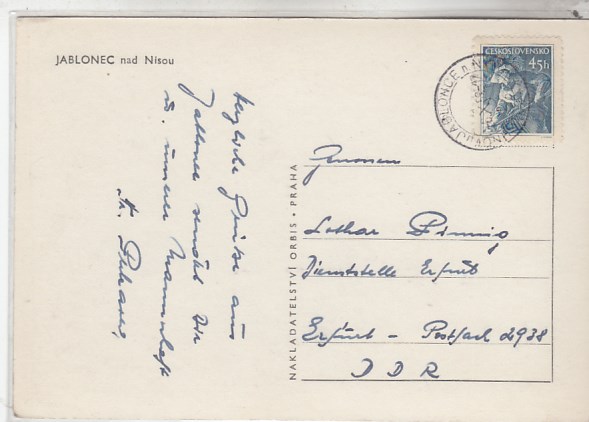 JABLONEC nad Nisou
ČESKOSLOVENSKO
45h
JABLONEC n. NISOU
Herzliche Grüße aus
sendet Dir
u. unserer Mannschaft
NAKLADATELSTVÍ ORBIS • PRAHA
Genossen
Lothar
Dienststelle Erfurt
Erfurt - Postfach 2938
DDR